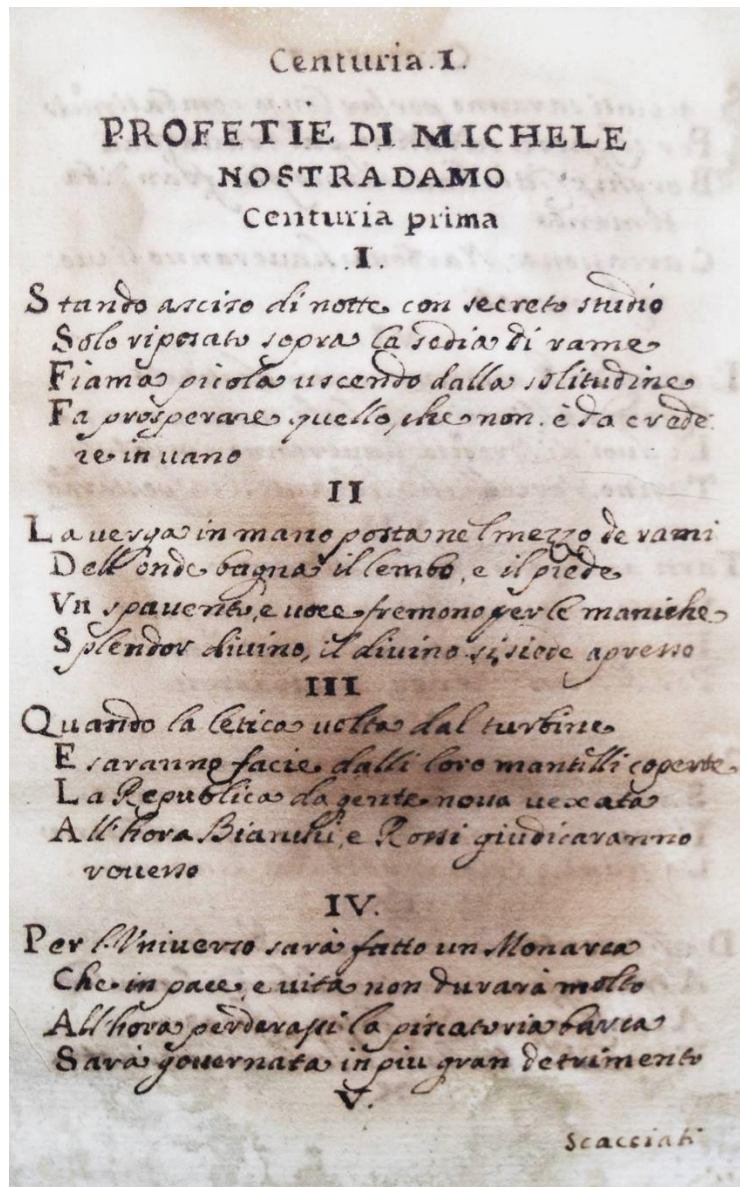 Centuria.I.
PROFETIE DI MICHELE
NOSTRADAMO
Centuria prima
.I.
Stando asciso di notte con secreto studio
Solo riposato sopra la sedia di rame
Fiama picola uscendo dalla solitudine
Fa prosperare quello, che non è da crede:
re in uano
II
La verga in mano posta nel mezzo de rami
Dell'onde bagna il lembo, e il piede
Vn spavento, e voce fremono per le maniche
Splendor divino, il divino si siede apresso
III
Quando la letica uolta dal turbine
E saranno facie dalli loro mantilli coperte
La Republica da gente noua uexata
All'hora Bianchi, e Rossi giudicaranno
rouerso
IV.
Per l'Vniuerso sarà fatto un Monarca
Che in pace, e uita non durarà molto
All'hora perderassi la piscatoria barca
Sarà gouernata in piu gran detrimento
V.
Scacciati